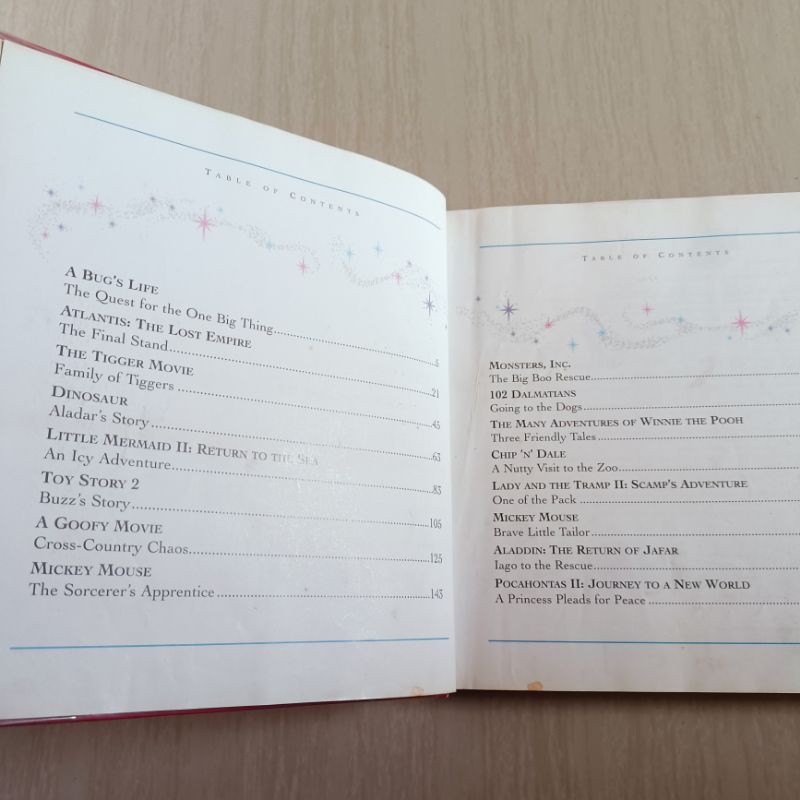 TABLE OF CONTENTS
A BUG'S LIFE
The Quest for the One Big Thing...5
ATLANTIS: THE LOST EMPIRE
The Final Stand...21
THE TIGGER MOVIE
Family of Tiggers...45
DINOSAUR
Aladar's Story...63
LITTLE MERMAID II: RETURN TO THE SEA
An Icy Adventure...83
TOY STORY 2
Buzz's Story...105
A GOOFY MOVIE
Cross-Country Chaos...125
MICKEY MOUSE
The Sorcerer's Apprentice...143
TABLE OF CONTENTS
MONSTERS, INC.
The Big Boo Rescue...
102 DALMATIANS
Going to the Dogs...
THE MANY ADVENTURES OF WINNIE THE POOH
Three Friendly Tales...
CHIP 'N' DALE
A Nutty Visit to the Zoo...
LADY AND THE TRAMP II: SCAMP'S ADVENTURE
One of the Pack...
MICKEY MOUSE
Brave Little Tailor...
ALADDIN: THE RETURN OF JAFAR
Iago to the Rescue...
POCAHONTAS II: JOURNEY TO A NEW WORLD
A Princess Pleads for Peace...